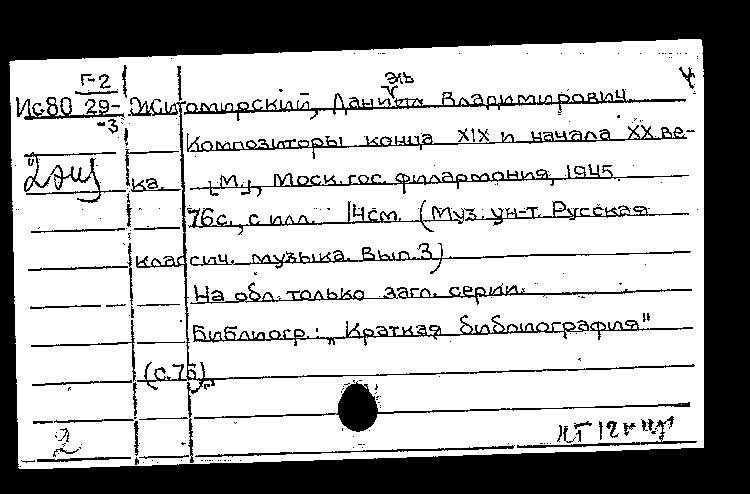 Г-2
Ис80 29-
-3
Житомирский, Даниэль Владимирович.
Композиторы конца XIX и начала XX ве-
ка. [М.], Моск. гос. филармония, 1945.
2 экз
76с., с илл. 14см. (Муз. ун-т. Русская
классич. музыка. Вып. 3)
На обл. только загл. серии.
Библиогр.: „Краткая библиография"
(с. 75).
2